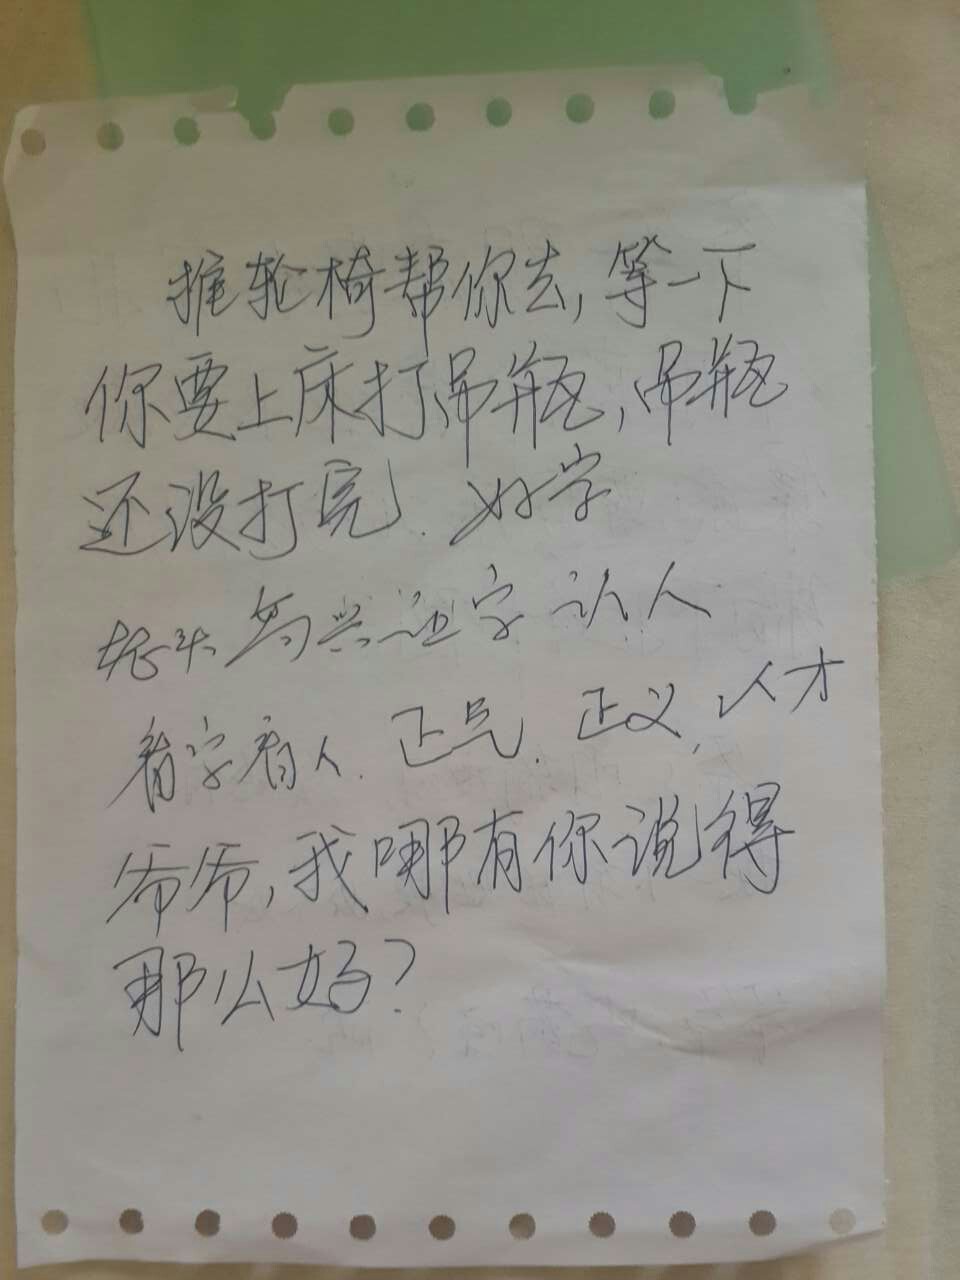 推轮椅帮你去,等一下
你要上床打吊瓶,吊瓶
还没打完. 好字
写 字 认人
看字看人. 正气. 正义, 人才
爷爷,我哪有你说得
那么好?